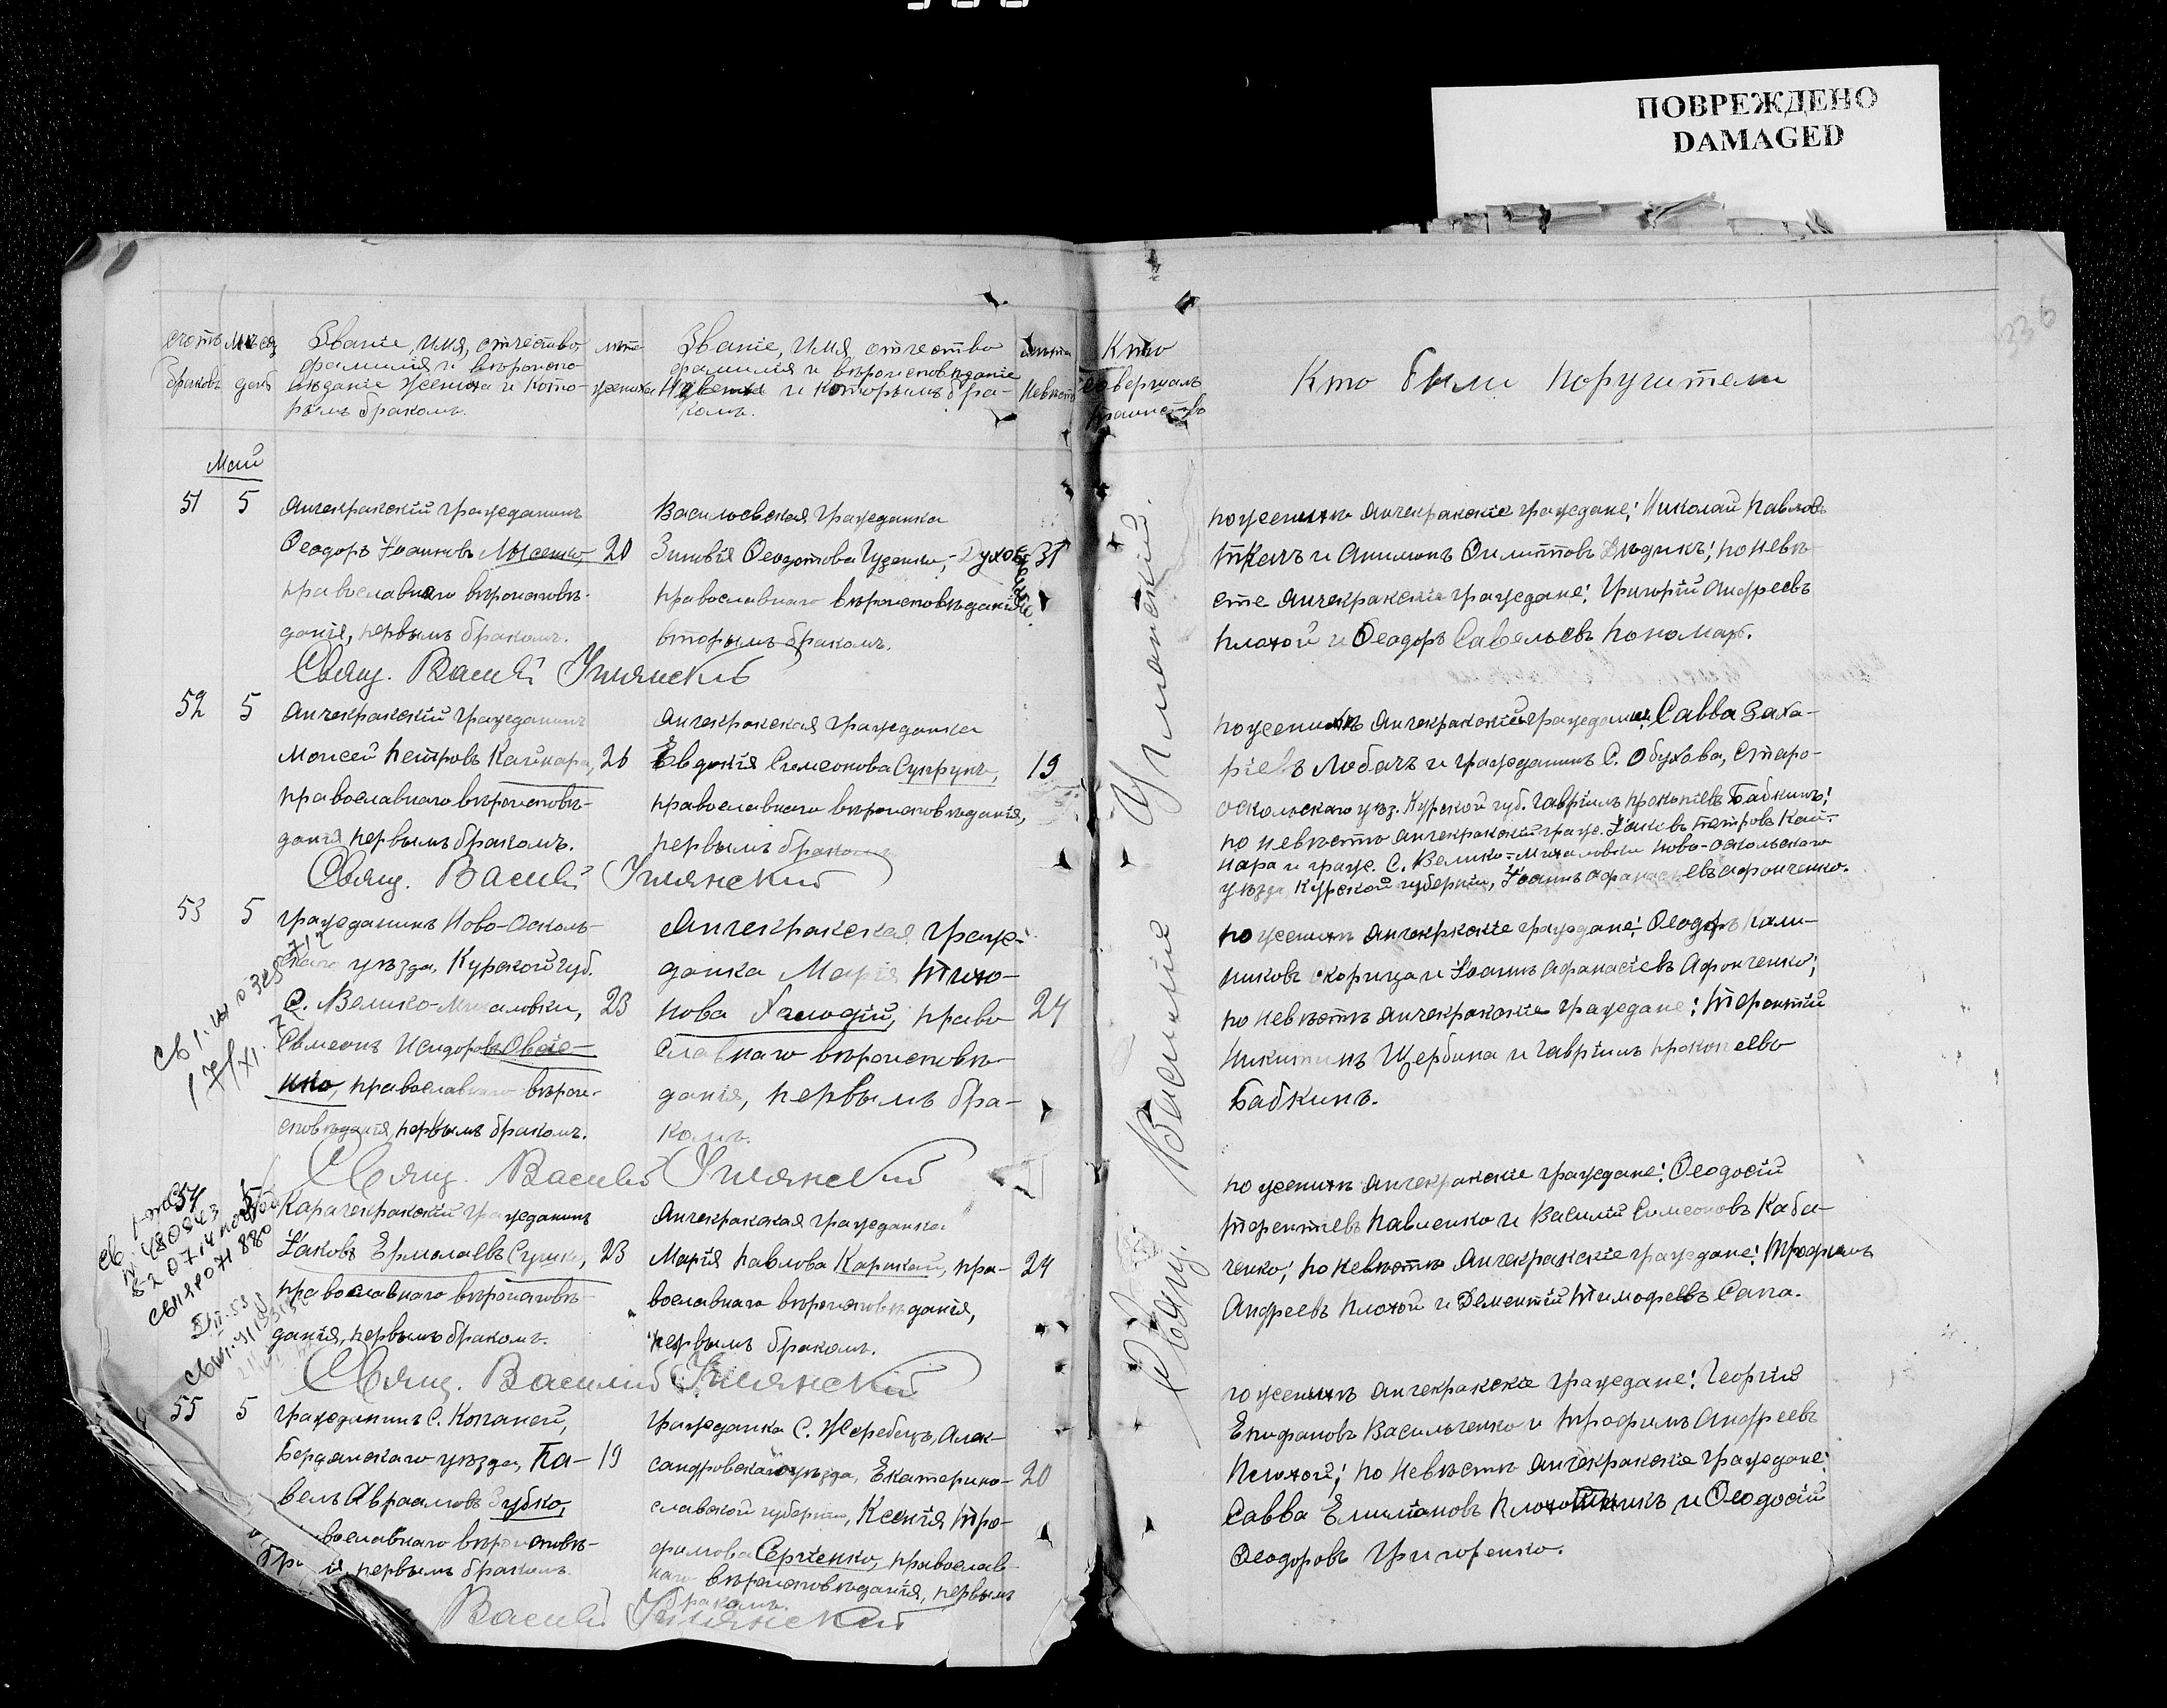 ПОВРЕЖДЕНО
DAMAGED
336
счотъ
браковъ
Месяц
день
Званіе, имя, отчество
фамилія и вѣроиспо-
вѣданіе жениха и кото-
рымъ бракомъ.
лѣта
жениха
Званіе, имя, отчество
фамилія и вѣроисповѣданіе
Невѣсты и которымъ бра-
комъ.
лѣта
Невѣсты
Кто
совершалъ
таинство
Кто были поручители
Май
51
5
Анчекракскій гражданинъ
Ѳеодоръ Іоанновъ
православнаго вѣроисповѣ-
данія, первымъ бракомъ.
20
Васильевская гражданка
Зиновія Ѳеодотова Гузенко,
православнаго вѣроисповѣданія
вторымъ бракомъ.
31
Свящ. Василій Уманскій
по женихѣ Анчекракскіе граждане: Николай Павловъ
Ткачъ и Филиповъ по невѣ-
сте Анчекракскіе граждане: Григорій Андреевъ
Плохой и Ѳеодоръ Савельевъ Пономарь.
52
5
Анчекракскій гражданинъ
Моисей Петровъ Кайнара,
православнаго вѣроисповѣ-
данія первымъ бракомъ.
26
Анчекракская гражданка
Евдокія Симеонова Супрунъ,
православнаго вѣроисповѣданія,
первымъ бракомъ
19
Свящ. Василій Уманскій
по женихѣ Анчекракскій гражданинъ Савва Заха-
ріевъ Лобачъ и гражданинъ С. Обухова, Старо-
оскольскаго уѣз. Курской губ. Гавріилъ Прокопіевъ Бабкинъ;
по невѣстѣ Анчекракскій граж. Іаковъ Петровъ Кай-
нара и граж. С. Велико-Михаловки Ново-Оскольскаго
уѣзда, Курской губерніи, Іоаннъ Афанасьевъ Афонченко.
53
5
гражданинъ Ново-Осколь-
скаго уѣзда, Курской губ.
С. Велико-Михаловки,
Симеонъ Исидоровъ Овсіе-
нко, православнаго вѣрои-
сповѣданія, первымъ бракомъ.
23
Анчекракская граж-
данка Марія Тихо-
нова право
славнаго вѣроисповѣ-
данія, первымъ бра-
комъ.
24
Свящ. Василій Уманскій
по женихѣ Анчекракскіе граждане: Ѳеодоръ Кали-
никовъ Скорица и Іоаннъ Афанасіевъ Афонченко;
по невѣстѣ Анчекракскіе граждане: Терентій
Никитинъ Щербина и Гавріилъ Прокопеевъ
Бабкинъ.
54
5
Карачекракскій гражданинъ
Іаковъ Ермолаевъ Сушко,
православнаго вѣроисповѣ-
данія, первымъ бракомъ.
23
Анчекракская гражданка
Марія Павлова пра-
вославнаго вѣроисповѣданія,
первымъ бракомъ.
24
Свящ. Василій Уманскій
по женихѣ Анчекракскіе граждане: Ѳеодосій
Терентіевъ Павленко и Василій Симеоновъ Каба-
ченко; по невѣстѣ Анчекракскіе граждане: Трофимъ
Андреевъ Плохой и Дементій Тимофеевъ Сапа.
55
5
гражданинъ С. Копаней,
Бердянскаго уѣзда, Па-
велъ Авраамовъ Зубко,
вославнаго вѣроисповѣ-
первымъ бракомъ.
19
гражданка С. Жеребецъ, Алек-
сандровскаго уѣзда, Екатерино-
славской губерніи, Ксенія Тро-
фимова Сергіенко, православ-
наго вѣроисповѣданія, первымъ
бракомъ.
20
Василій Уманскій
по женихѣ Анчекракскіе граждане: Георгій
Епифановъ Васильченко и Трофимъ Андреевъ
Плохой; по невѣстѣ Анчекракскіе граждане:
Савва Емиліановъ и Ѳеодосій
Ѳеодоровъ Григоренко.
Свящ. Василий Уманский